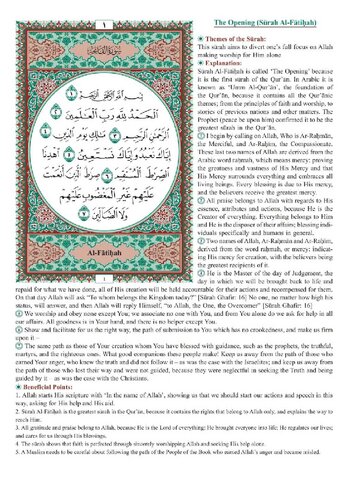 ١
سورة الفاتحة
بِسْمِ اللَّهِ الرَّحْمَٰنِ الرَّحِيمِ ١
الْحَمْدُ لِلَّهِ رَبِّ الْعَالَمِينَ ٢
الرَّحْمَٰنِ الرَّحِيمِ ٣ مَالِكِ يَوْمِ الدِّينِ ٤
إِيَّاكَ نَعْبُدُ وَإِيَّاكَ نَسْتَعِينُ ٥ اهْدِنَا
الصِّرَاطَ الْمُسْتَقِيمَ ٦ صِرَاطَ الَّذِينَ أَنْعَمْتَ
عَلَيْهِمْ غَيْرِ الْمَغْضُوبِ عَلَيْهِمْ
وَلَا الضَّالِّينَ ٧
Al-Fātiḥah
1
The Opening (Sūrah Al-Fātiḥah)
Themes of the Sūrah:
This sūrah aims to divert one's full focus on Allah
making worship for Him alone
Explanation:
Sūrah Al-Fātiḥah is called 'The Opening' because
it is the first surah of the Qur'ān. In Arabic it is
known as 'Umm Al-Qur'ān', the foundation of
the Qur'ān, because it contains all the Qur'ānic
themes; from the principles of faith and worship, to
stories of previous nations and other matters. The
Prophet (peace be upon him) confirmed it to be the
greatest sūrah in the Qur'ān.
1 I begin by calling on Allah, Who is Ar-Raḥmān,
the Merciful, and Ar-Raḥīm, the Compassionate.
These last two names of Allah are derived from the
Arabic word raḥmah, which means mercy; proving
the greatness and vastness of His Mercy and that
His Mercy surrounds everything and embraces all
living beings. Every blessing is due to His Mercy,
and the believers receive the greatest mercy.
2 All praise belongs to Allah with regards to His
essence, attributes and actions, because He is the
Creator of everything. Everything belongs to Him
and He is the disposer of their affairs; blessing indi-
viduals specifically and humans in general.
3 Two names of Allah, Ar-Raḥmān and Ar-Raḥīm,
derived from the word raḥmah, or mercy; indicat-
ing His mercy for creation, with the believers being
the greatest recipients of it.
4 He is the Master of the day of Judgement, the
day in which we will be brought back to life and
repaid for what we have done, all of His creation will be held accountable for their actions and recompensed for them.
On that day Allah will ask "To whom belongs the Kingdom today?" [Sūrah Ghafir: 16] No one, no matter how high his
status, will answer, and then Allah will reply Himself, "to Allah, the One, the Overcomer" [Sūrah Ghafir: 16]
5 We worship and obey none except You, we associate no one with You, and from You alone do we ask for help in all
our affairs. All goodness is in Your hand, and there is no helper except You.
6 Show and facilitate for us the right way, the path of submission to You which has no crookedness, and make us firm
upon it –
7 The same path as those of Your creation whom You have blessed with guidance, such as the prophets, the truthful,
martyrs, and the righteous ones. What good companions these people make! Keep us away from the path of those who
earned Your anger, who knew the truth and did not follow it – as was the case with the Israelites; and keep us away from
the path of those who lost their way and were not guided, because they were neglectful in seeking the truth and being
guided by it – as was the case with the Christians.
Beneficial Points:
1. Allah starts His scripture with 'In the name of Allah', showing us that we should start our actions and speech in this
way, asking for His help and His aid.
2. Sūrah Al-Fātiḥah is the greatest sūrah in the Qur'ān, because it contains the rights that belong to Allah only, and explains the way to
reach Him.
3. All gratitude and praise belong to Allah, because He is the Lord of everything! He brought everyone into life; He regulates our lives; and
cares for us through His Blessings.
4. The sūrah shows that faith is perfected through sincerely worshipping Allah and seeking His help alone.
5. A Muslim needs to be careful about following the path of the People of the Book who earned Allah's anger and became misled.